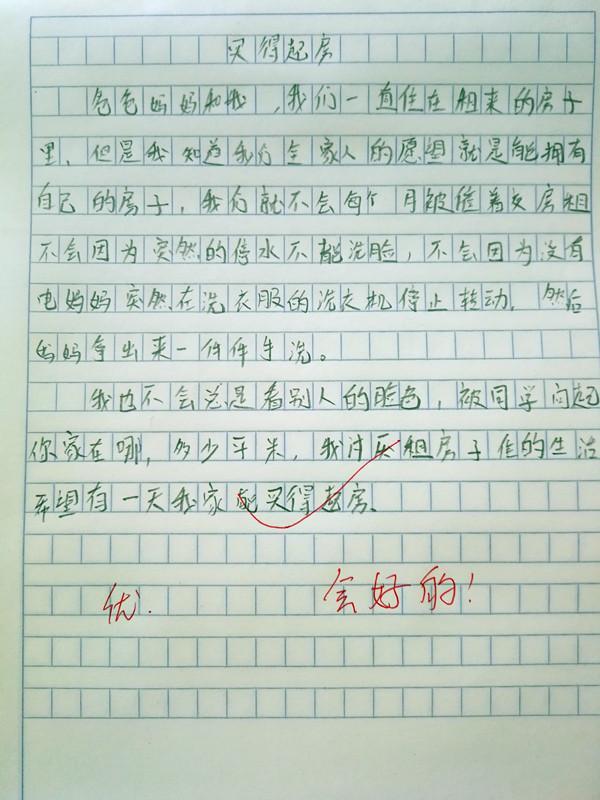 买得起房
爸爸妈妈和我,我们一直住在租来的房子
里,但是我知道我们全家人的愿望就是能拥有
自己的房子,我们就不会每个月被催着交房租
不会因为突然的停水不能洗脸,不会因为没有
电妈妈突然在洗衣服的洗衣机停止转动,然后
妈妈拿出来一件件手洗。
我也不会总是看别人的脸色,被同学问起
你家在哪,多少平米,我讨厌租房子住的生活
希望有一天我家能买得起房、
优.
会好的!